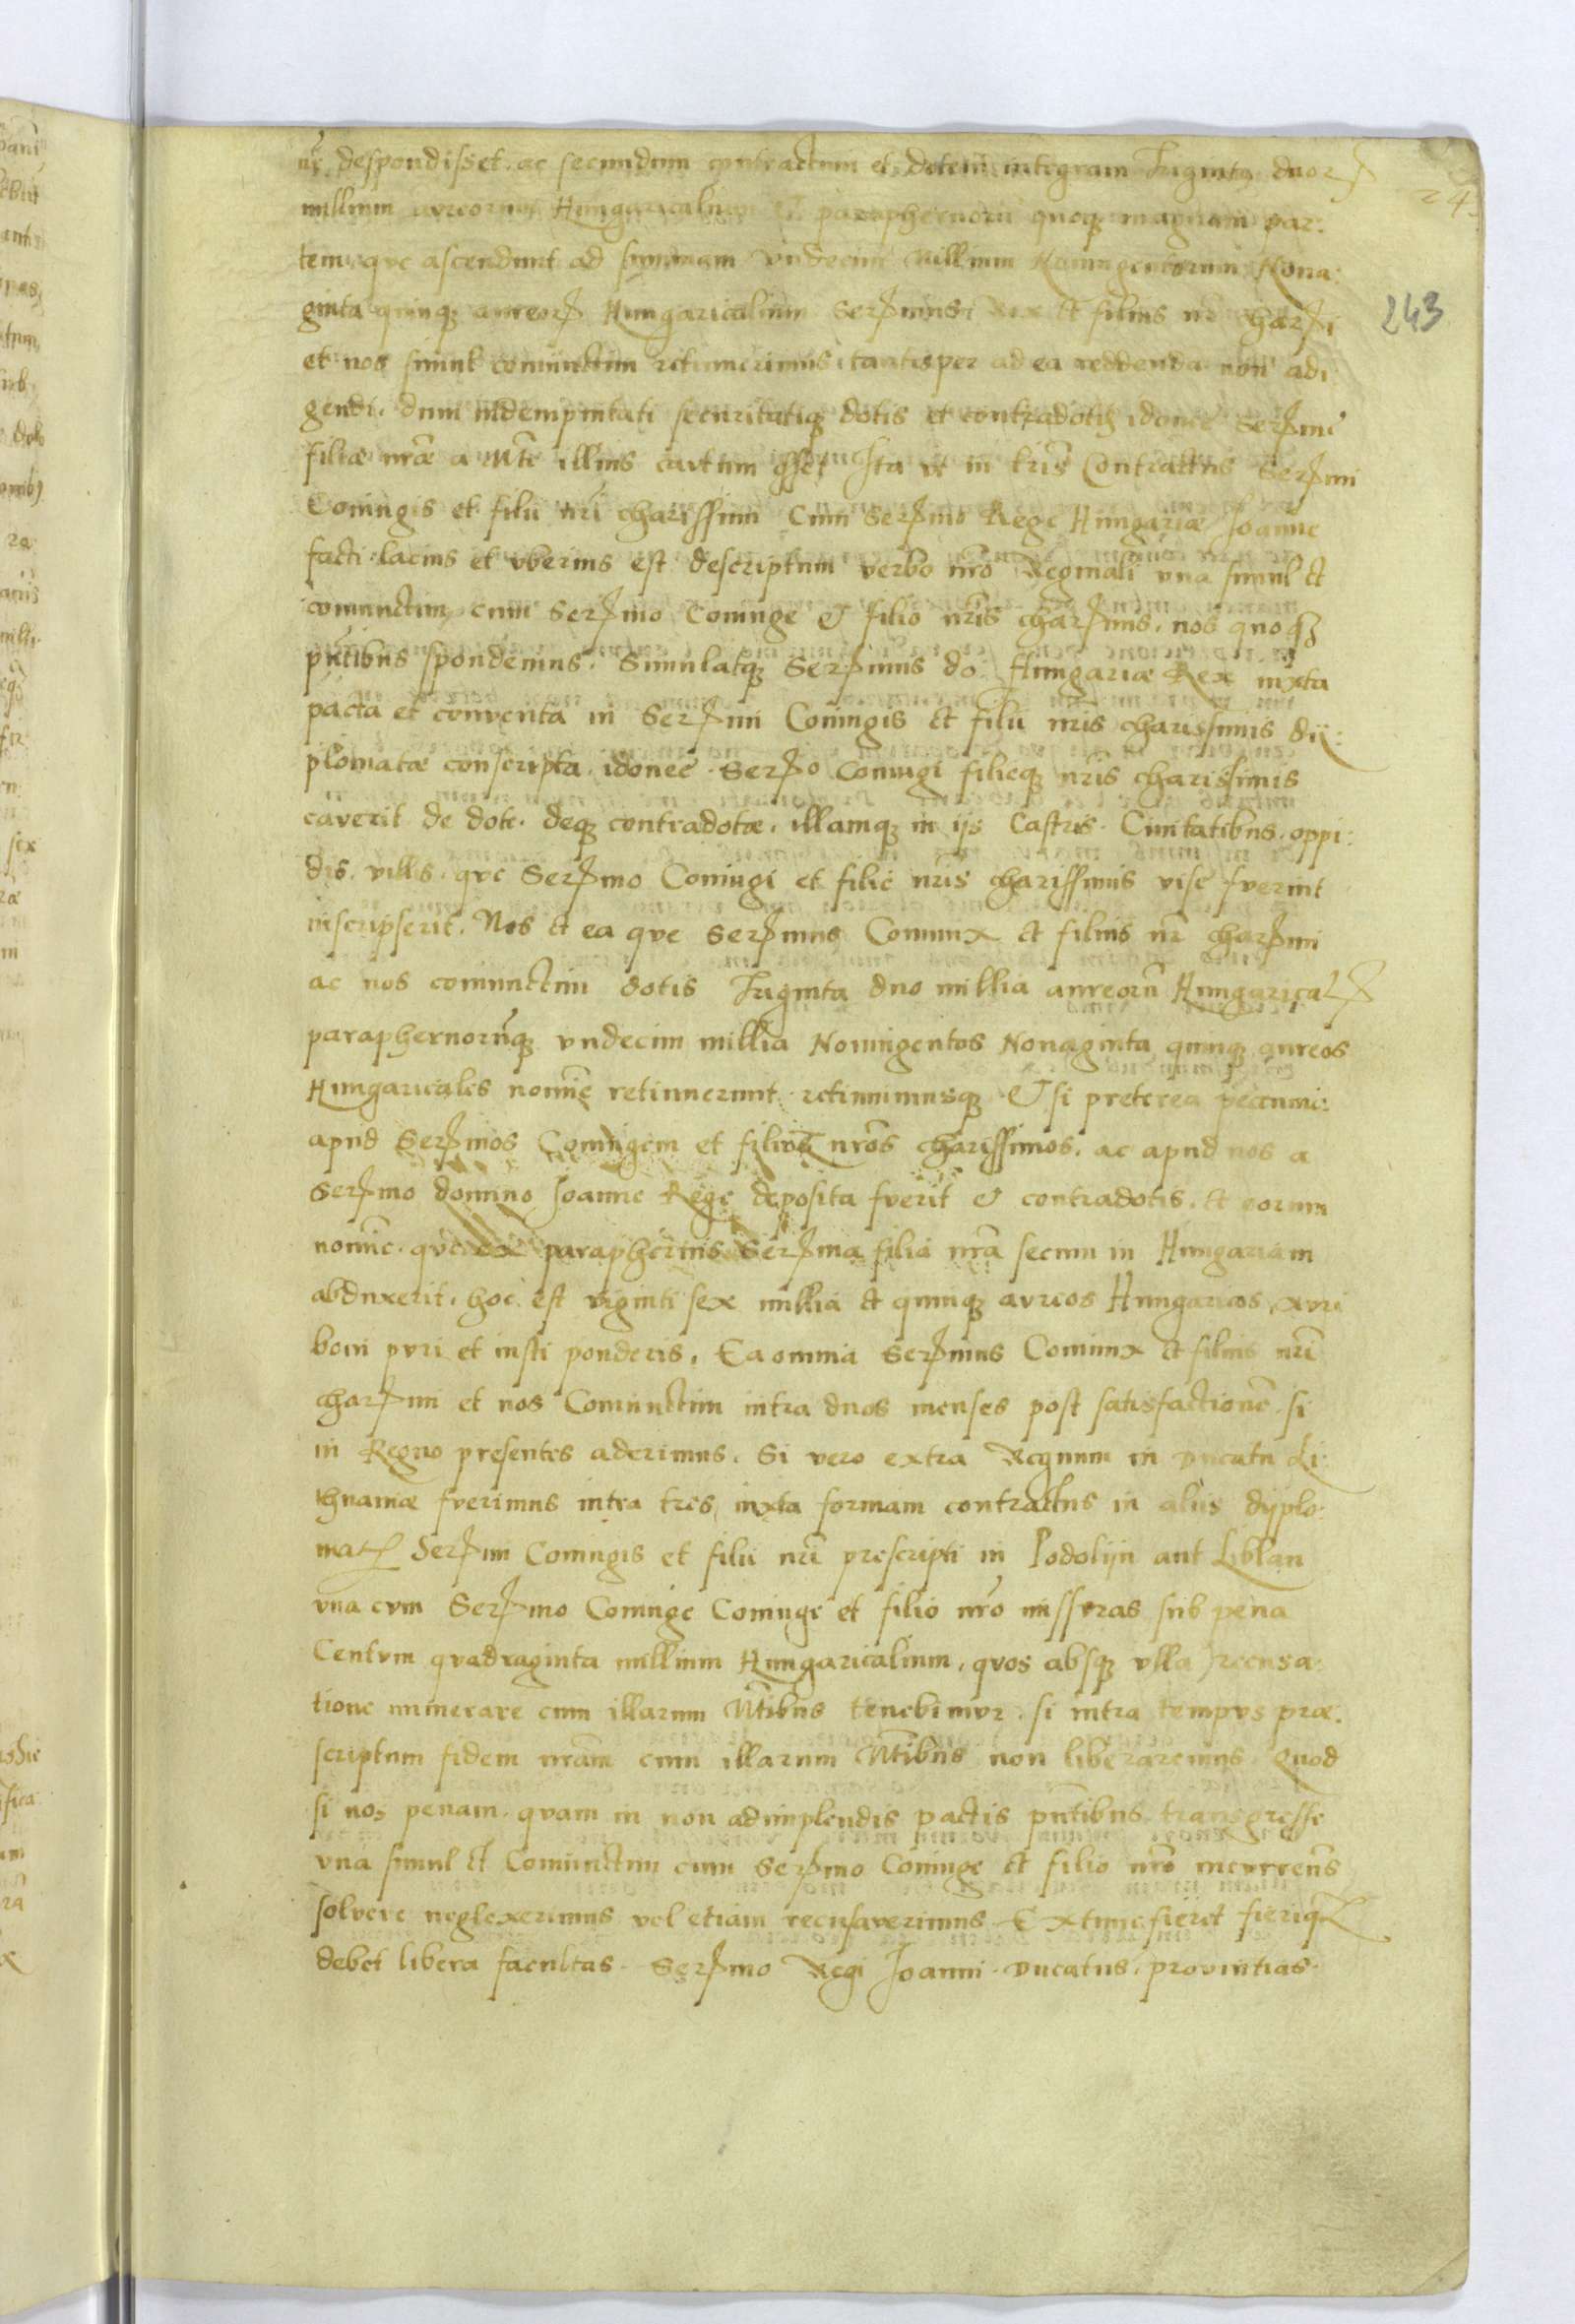 ur̃ despondisset. ac secundum contractum et dotem integram Triginta duorꝝ
millium aureorum Hungaricalium Et paraphernorũ quoqꝫ magnam par:
tem, que ascendunt ad summam undecim Millium Noningentorum Nona:
ginta quinqꝫ aureorꝝ Hungaricalium Serꝑmus Rex et filius nr̃ charꝑi
et nos simul coniunctim retinuerimus, tantisper ad ea reddenda non adi
gendi. dum indempnitati securitatiqꝫ dotis et contradotis idonee Serꝑme
filiæ nr̃æ a Mte illius cautum esset Ita ut in lris Contractus Serꝑmi
Coniugis et filii nr̃i charissimi Cum Serꝑmo Rege Hungariæ Joanne
facti lacius et vberius est descriptum verbo nr̃o Reginali vna simul et
coniunctim cum Serꝑmo Coniuge et filio nr̃is charꝑmis. nos quoqꝫ
pñtibus spondemus. Simulatqꝫ Serꝑmus do: Hungariæ Rex iuxta
pacta et conventa in Serꝑmi Coniugis et filii nr̃is charissimis dij:
plomatæ conscripta. idonee Serꝑo Coniugi filieqꝫ nr̃is charissimis
caverit de dote. deqꝫ contradotæ. illamqꝫ in ijs Castris. Ciuitatibus. oppi:
dis. villis. que Serꝑmo Coniugi et filie nr̃is charissimis vise fuerint
inscripserit. Nos et ea que Serꝑmus Coniunx et filius nr̃ charꝑmi
ac nos coniunctim dotis Triginta duo millia aureorũ Hungaricalꝝ
paraphernorũqꝫ vndecim millia Noningentos Nonaginta quinqꝫ aureos
Hungaricales nomine retinuerunt retinuimusqꝫ Et si preterea pecunie
apud Serꝑmos Coniugem et filium nr̃os charissimos. ac apud nos a
Serꝑmo domino Joanne Rege deposita fuerit et contradotis. et eorum
nomine. que ex paraphernis Serꝑma filia nr̃a secum in Hungariam
abduxerit. hoc est viginti sex millia et quinqꝫ aureos Hungaricos, auri
boni puri et iusti ponderis. Ea omnia Serꝑmus Coniunx et filius nr̃i
charꝑmi et nos Coniunctim intra duos menses post satisfactionẽ. si
in Regno presentes aderimus. Si vero extra Regnum in Ducatu Li:
thuaniæ fuerimus intra tres, iuxta formam contractus in aliis dijplo:
matꝭ Serꝑmi Coniugis et filii nr̃i prescripti in Podolijn aut Liblau
vna cum Serꝑmo Coniuge Coniuge et filio nr̃o missuras sub pena
Centum quadraginta millium Hungaricalium, quos absqꝫ ulla recusa:
tione numerare cum illarum Mtibus tenebimur. si intra tempus præ:
scriptum fidem nr̃am cum illarum Mtibus non liberaremus. Quod
si nos penam. quam in non adimplendis pactis pñtibus transgresse
vna simul et Coniunctim cum Serꝑmo Coniuge et filio nr̃o incurrens
solvere neglexerimus vel etiam recusaverimus. Extunc fieret fieriqꝫ
debet libera facultas. Serꝑmo Regi Joanni. Ducatus, provintias.
243